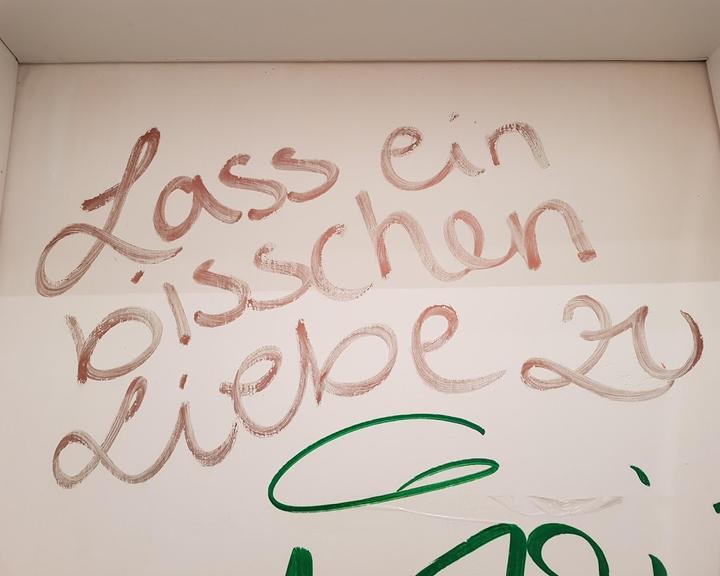 Lass ein
bisschen
Liebe zu